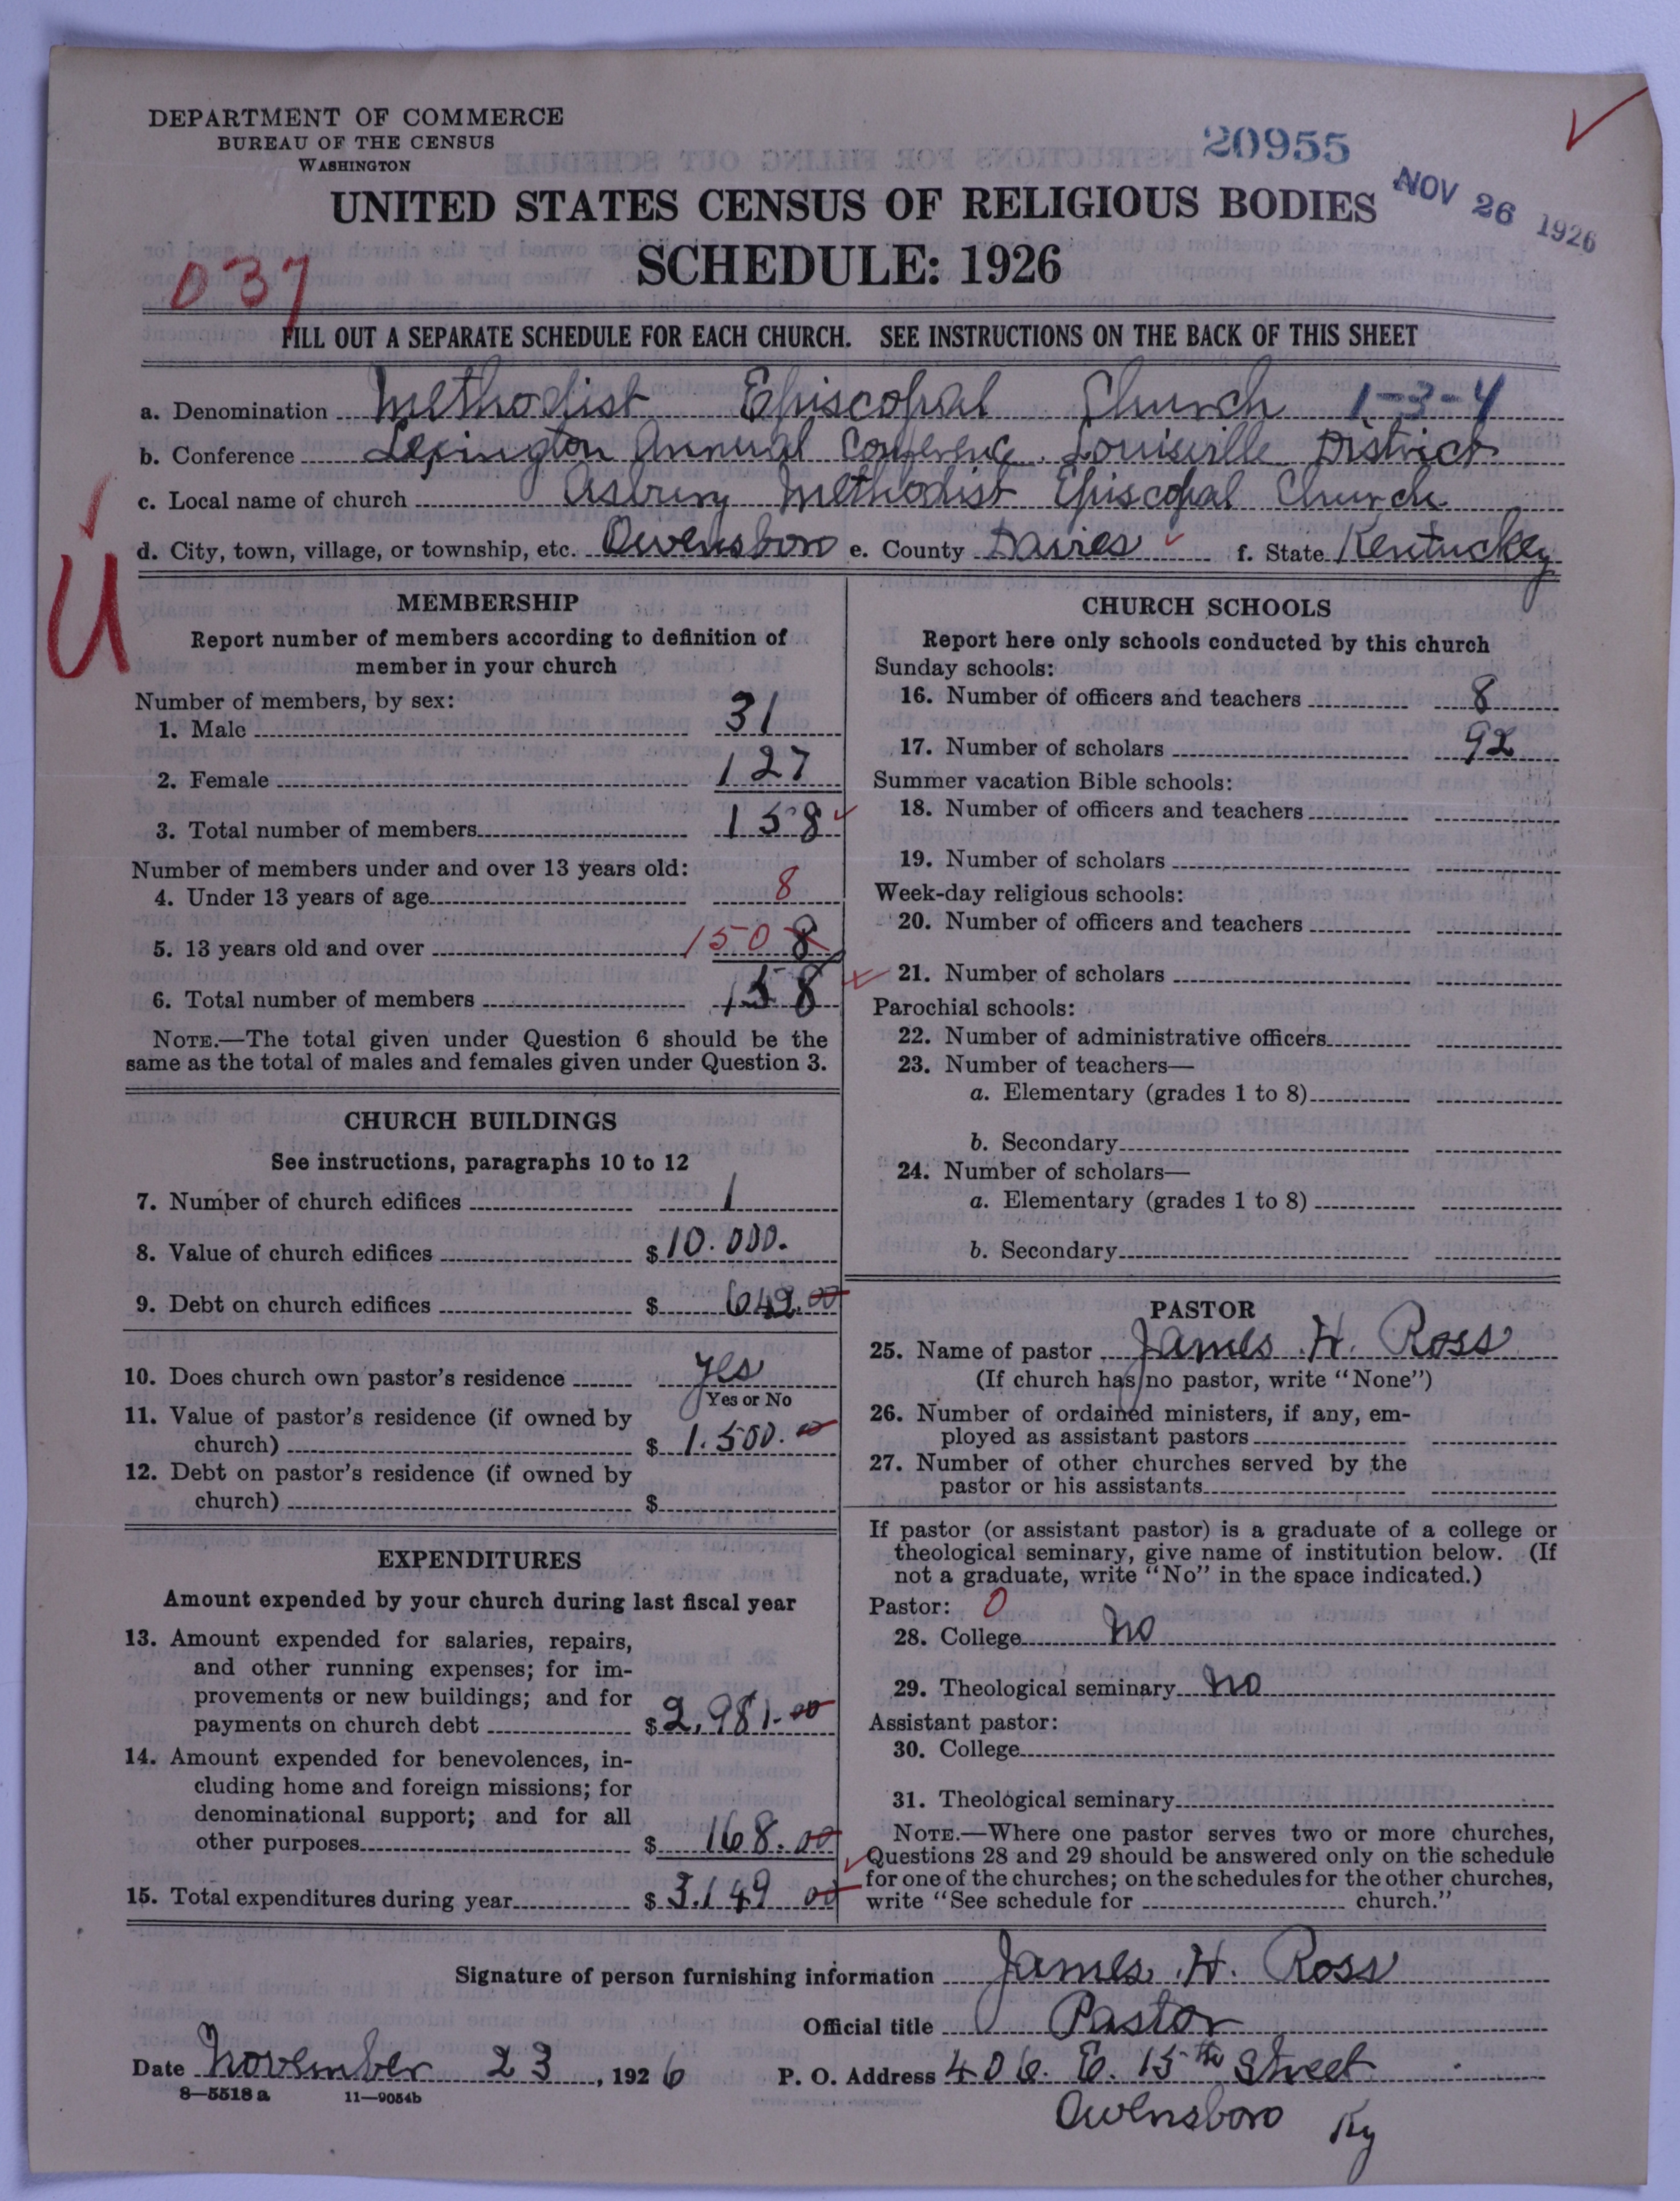 DEPARTMENT OF COMMERCE
BUREAU OF THE CENSUS
WASHINGTON
20955
NOV 26 1926
UNITED STATES CENSUS OF RELIGIOUS BODIES
SCHEDULE: 1926
037
FILL OUT A SEPARATE SCHEDULE FOR EACH CHURCH. SEE INSTRUCTIONS ON THE BACK OF THIS SHEET
a. Denomination Methodist Episcopal Church 1-3-4
b. Conference Lexington Annual Conference Louisville District
c. Local name of church Asbury Methodist Episcopal Church
d. City, town, village, or township, etc. Owensboro e. County Davies f. State Kentucky
U
MEMBERSHIP
Report number of members according to definition of
member in your church
Number of members, by sex:
1. Male 31
2. Female 127
3. Total number of members 158
Number of members under and over 13 years old:
4. Under 13 years of age 8
5. 13 years old and over 150 8
6. Total number of members 158
NOTE.—The total given under Question 6 should be the
same as the total of males and females given under Question 3.
CHURCH BUILDINGS
See instructions, paragraphs 10 to 12
7. Number of church edifices 1
8. Value of church edifices $ 10.000.
9. Debt on church edifices $ 642.00
10. Does church own pastor's residence yes
Yes or No
11. Value of pastor's residence (if owned by
church) $ 1.500.00
12. Debt on pastor's residence (if owned by
church) $
EXPENDITURES
Amount expended by your church during last fiscal year
13. Amount expended for salaries, repairs,
and other running expenses; for im-
provements or new buildings; and for
payments on church debt $ 2,981.00
14. Amount expended for benevolences, in-
cluding home and foreign missions; for
denominational support; and for all
other purposes $ 168.00
15. Total expenditures during year $ 3.149 00
CHURCH SCHOOLS
Report here only schools conducted by this church
Sunday schools:
16. Number of officers and teachers 8
17. Number of scholars 92
Summer vacation Bible schools:
18. Number of officers and teachers
19. Number of scholars
Week-day religious schools:
20. Number of officers and teachers
21. Number of scholars
Parochial schools:
22. Number of administrative officers
23. Number of teachers—
a. Elementary (grades 1 to 8)
b. Secondary
24. Number of scholars—
a. Elementary (grades 1 to 8)
b. Secondary
PASTOR
25. Name of pastor James H. Ross
(If church has no pastor, write "None")
26. Number of ordained ministers, if any, em-
ployed as assistant pastors
27. Number of other churches served by the
pastor or his assistants
If pastor (or assistant pastor) is a graduate of a college or
theological seminary, give name of institution below. (If
not a graduate, write "No" in the space indicated.)
Pastor: 0
28. College No
29. Theological seminary No
Assistant pastor:
30. College
31. Theological seminary
NOTE.—Where one pastor serves two or more churches,
Questions 28 and 29 should be answered only on the schedule
for one of the churches; on the schedules for the other churches,
write "See schedule for church."
Signature of person furnishing information James H. Ross
Official title Pastor
Date November 23, 1926 P. O. Address 406. E. 15th Street
8—5518 a 11—9054b
Owensboro Ky